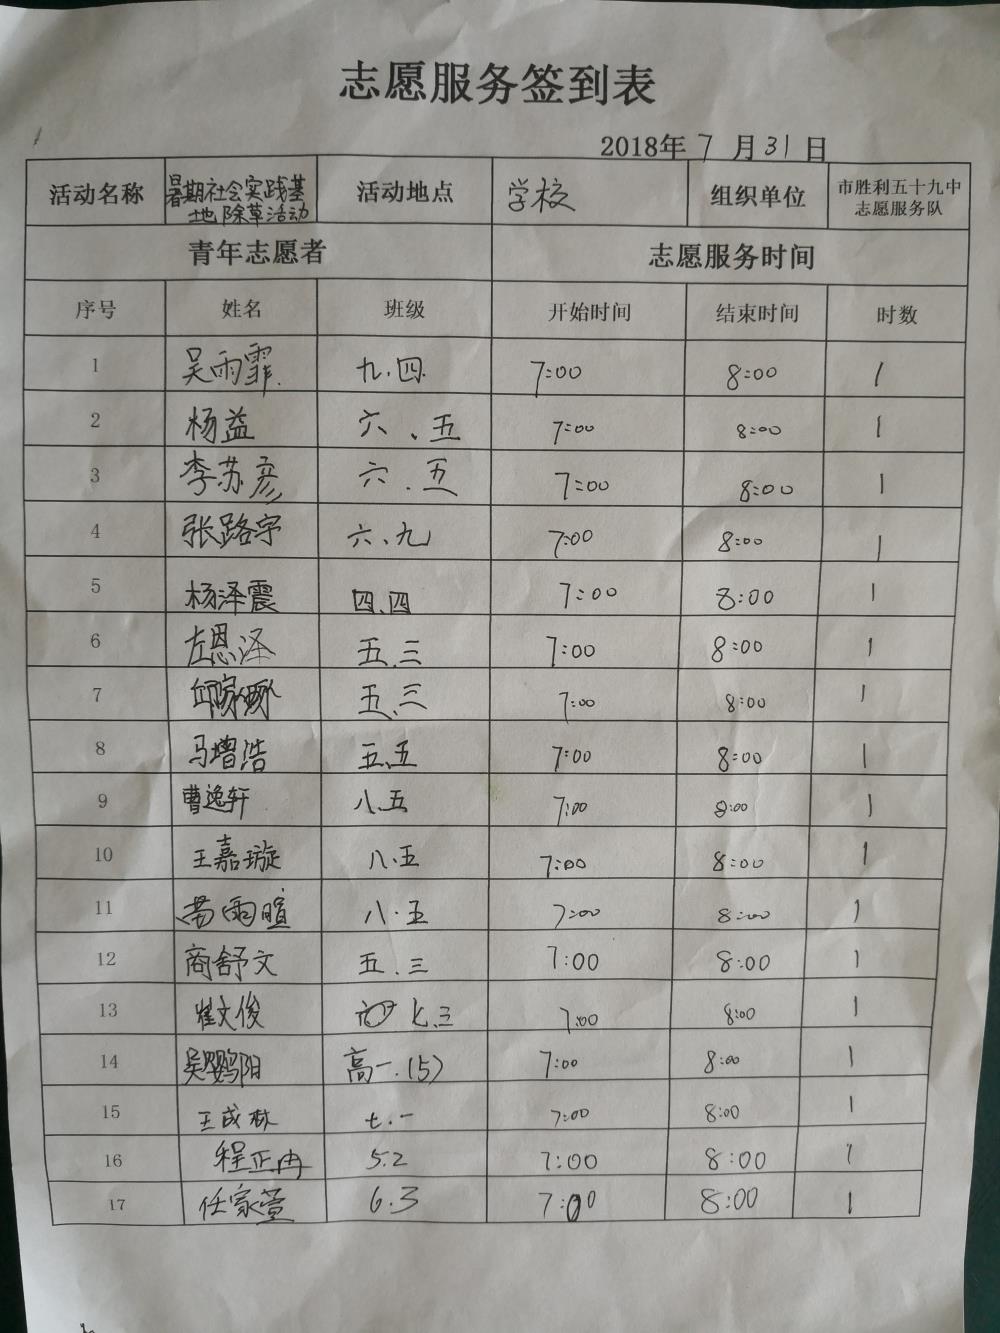 志愿服务签到表
2018年7月31日
活动名称 暑期社会实践基地除草活动 活动地点 学校 组织单位 市胜利五十九中志愿服务队
青年志愿者 志愿服务时间
序号 姓名 班级 开始时间 结束时间 时数
1 吴雨霏 九.四. 7:00 8:00 1
2 杨益 六、五 7:00 8:00 1
3 李苏彦 六.五 7:00 8:00 1
4 张路宇 六、九 7:00 8:00 1
5 杨泽震 四.四 7:00 8:00 1
6 左恩泽 五.三 7:00 8:00 1
7 五.三 7:00 8:00 1
8 马增浩 五.五 7:00 8:00 1
9 曹逸轩 八.五 7:00 8:00 1
10 王嘉璇 八.五 7:00 8:00 1
11 雨暄 八.五 7:00 8:00 1
12 商舒文 五.三 7:00 8:00 1
13 崔文俊 七.三 7:00 8:00 1
14 吴鹦阳 高一.(5) 7:00 8:00 1
15 王成林 七.一 7:00 8:00 1
16 程正冉 5.2 7:00 8:00 1
17 任家萱 6.3 7:00 8:00 1